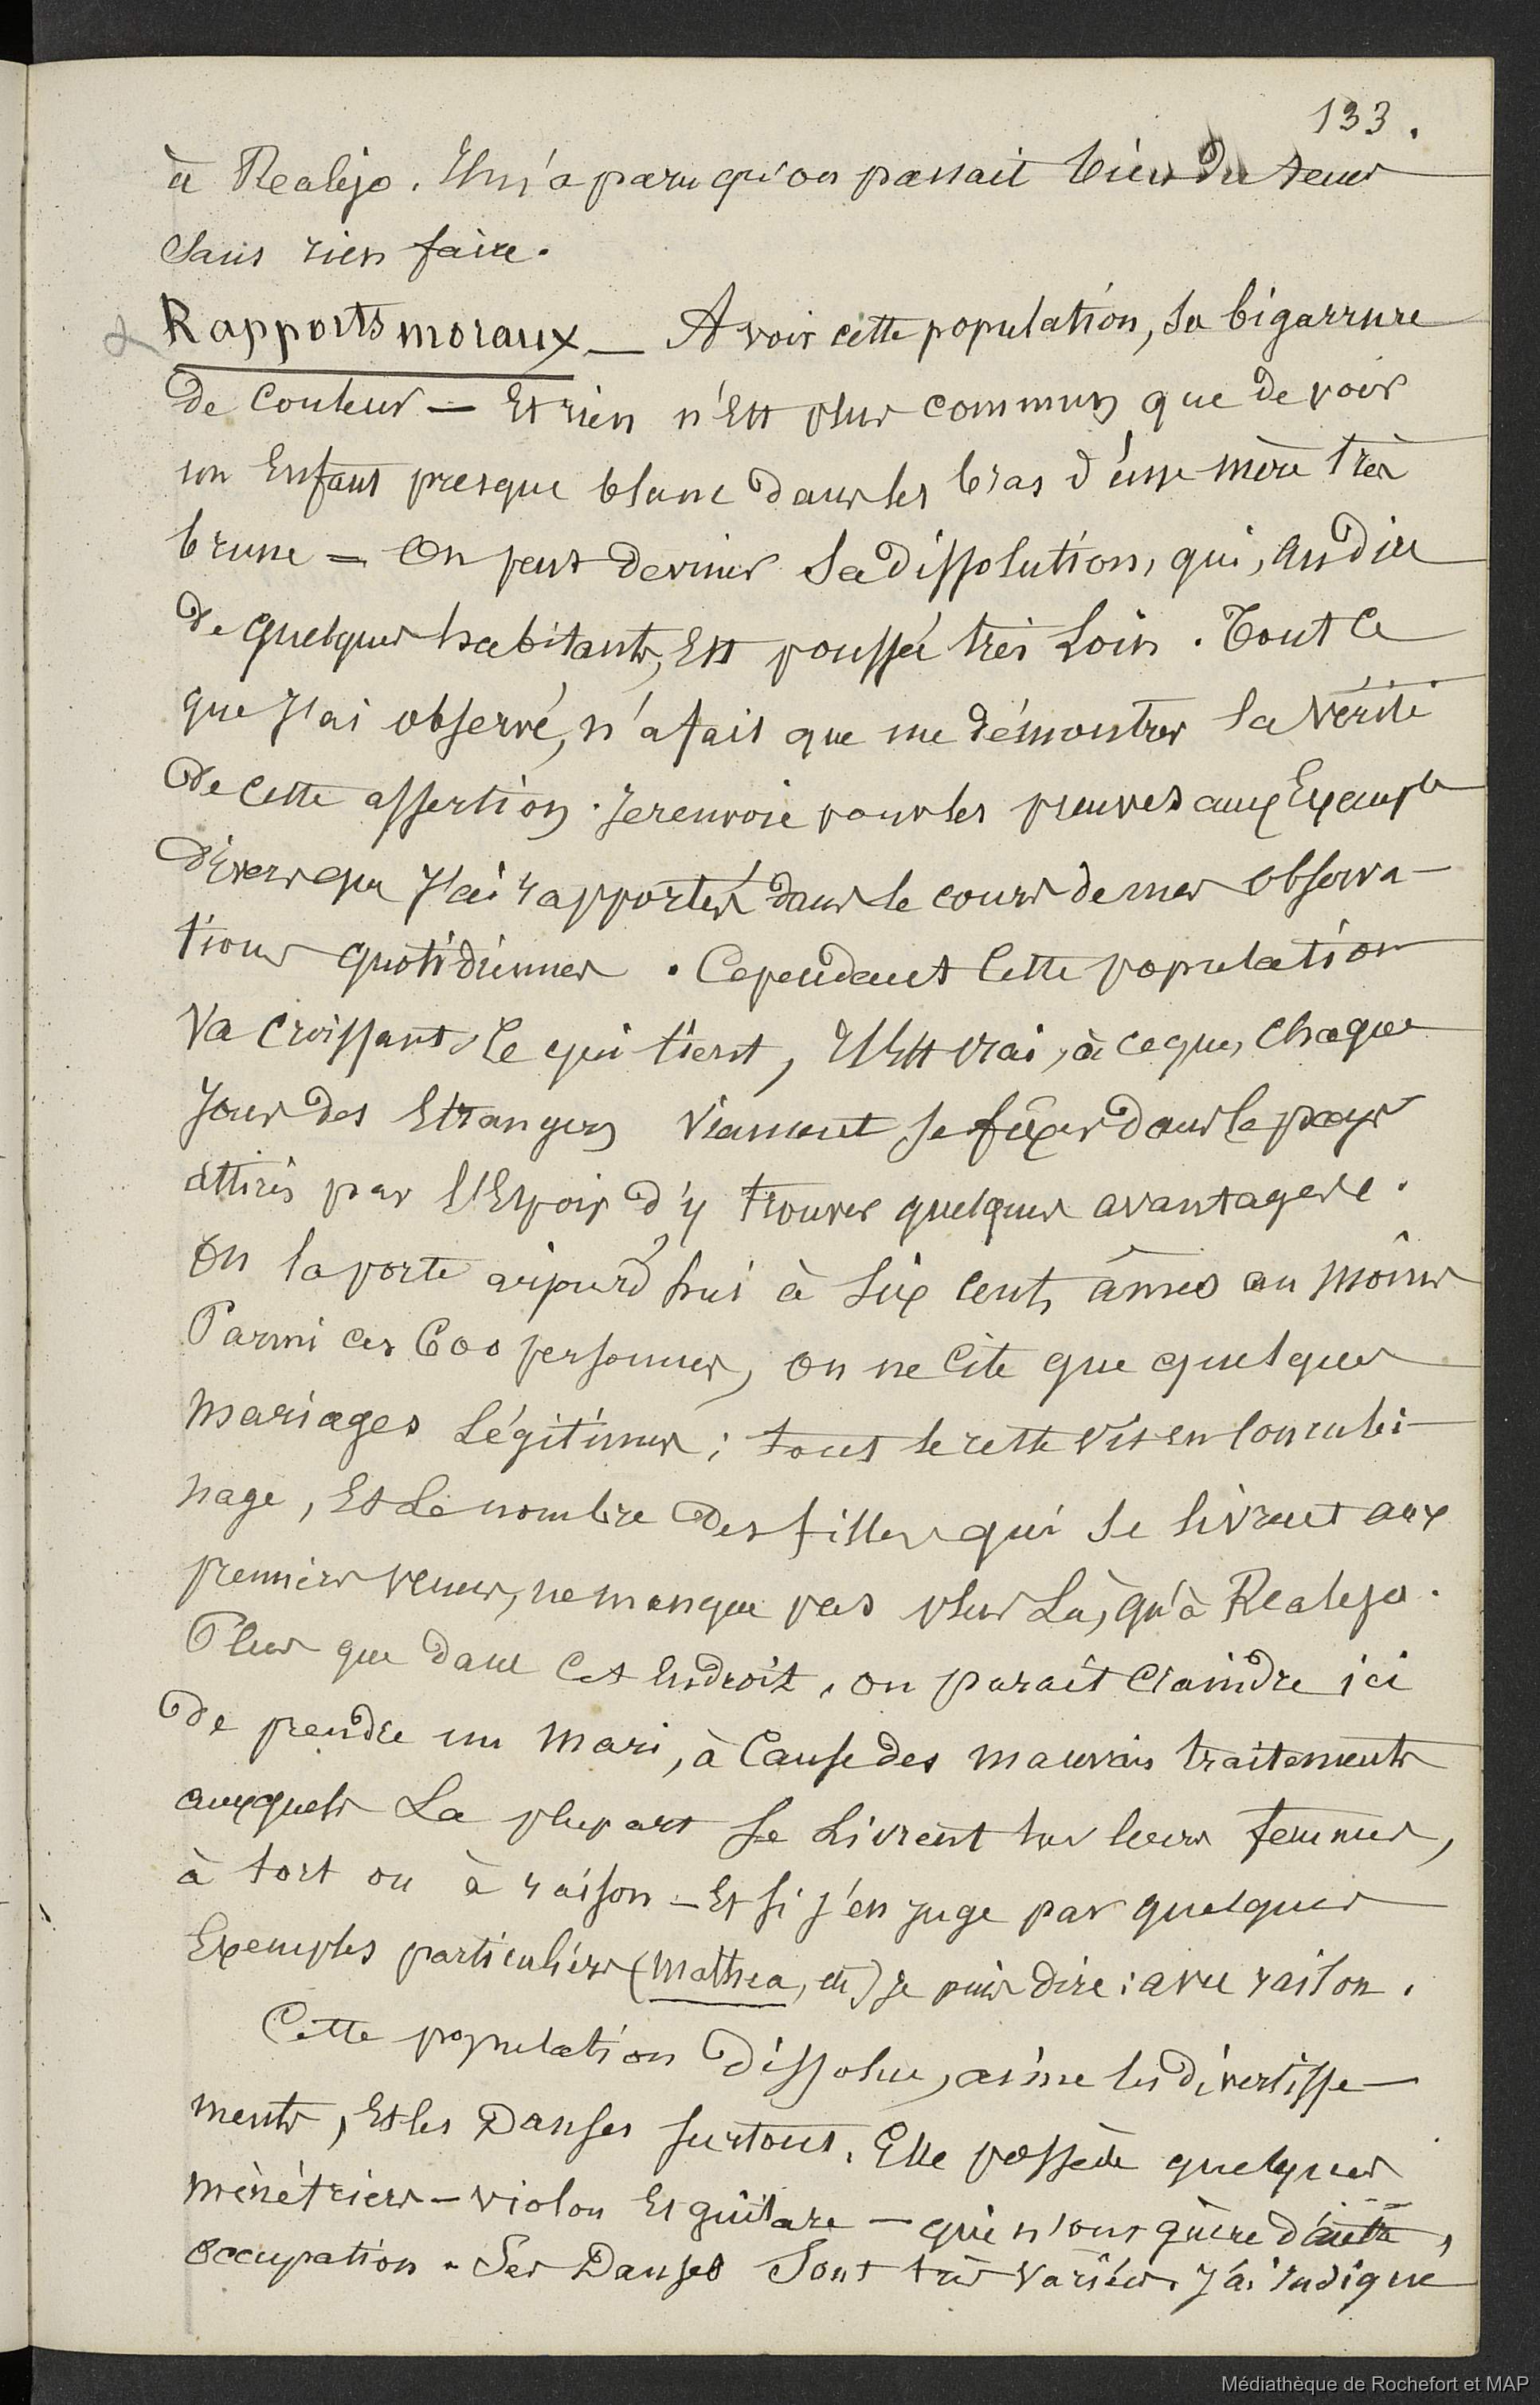 133.
à Realejo. Il m'a paru qu'on passait bien du tems
sans rien faire.
Rapports moraux — A voir cette population, sa bigarrure
de couleur — Et rien n'est plus commun que de voir
un Enfant presque blanc dans les bras d'une mère très
brune = On peut deviner sa dissolution, qui, au dire
de quelques habitants, Est poussée très loin. Tout ce
que j'ai observé, n'a fait que me démontrer la vérité
de cette assertion. Je renvoie pour les preuves aux Exemples
divers que j'ai rapportés dans le cours de mes observa-
tions quotidiennes. Cependant cette population
va croissant. Ce qui tient, Il Est vrai, à ce que, chaque
jour des Etrangers viennent se fixer dans le pays
attirés par l'Espoir d'y trouver quelques avantages.
On la porte aujourd'hui à six cents âmes au moins
Parmi ces 600 personnes, on ne cite que quelques
mariages légitimes; tout le reste vit en concubi-
nage, Et le nombre des filles qui se livrent aux
premiers venus, ne manque pas plus là, qu'à Realejo.
Plus que dans cet Endroit, on parait craindre ici
de prendre un mari, à cause des mauvais traitements
auxquels la plupart se livrent sur leurs femmes,
à tort ou à raison — Et si j'en juge par quelques
Exemples particuliers (Mathea, etc) je puis dire: avec raison.
Cette population dissolue, aime les divertisse-
ments, Et les Danses surtout. Elle possède quelques
ménétriers — violon Et guitare — qui n'ont guère d'autre
occupation. Ses Danses sont très variées. J'ai indiqué
Médiathèque de Rochefort et MAP